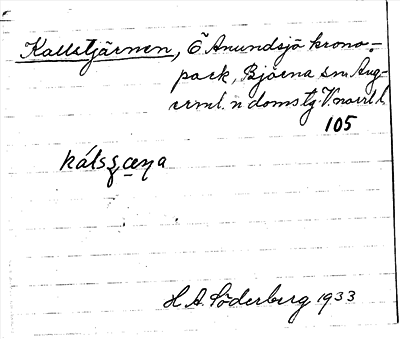 Kallstjärnen, Ö Anundsjö krono-
park, Björna sn. Ång-
erml. n domstg. V.norrl. l.
105
kálsʂæɳa
H A. Söderberg 1933